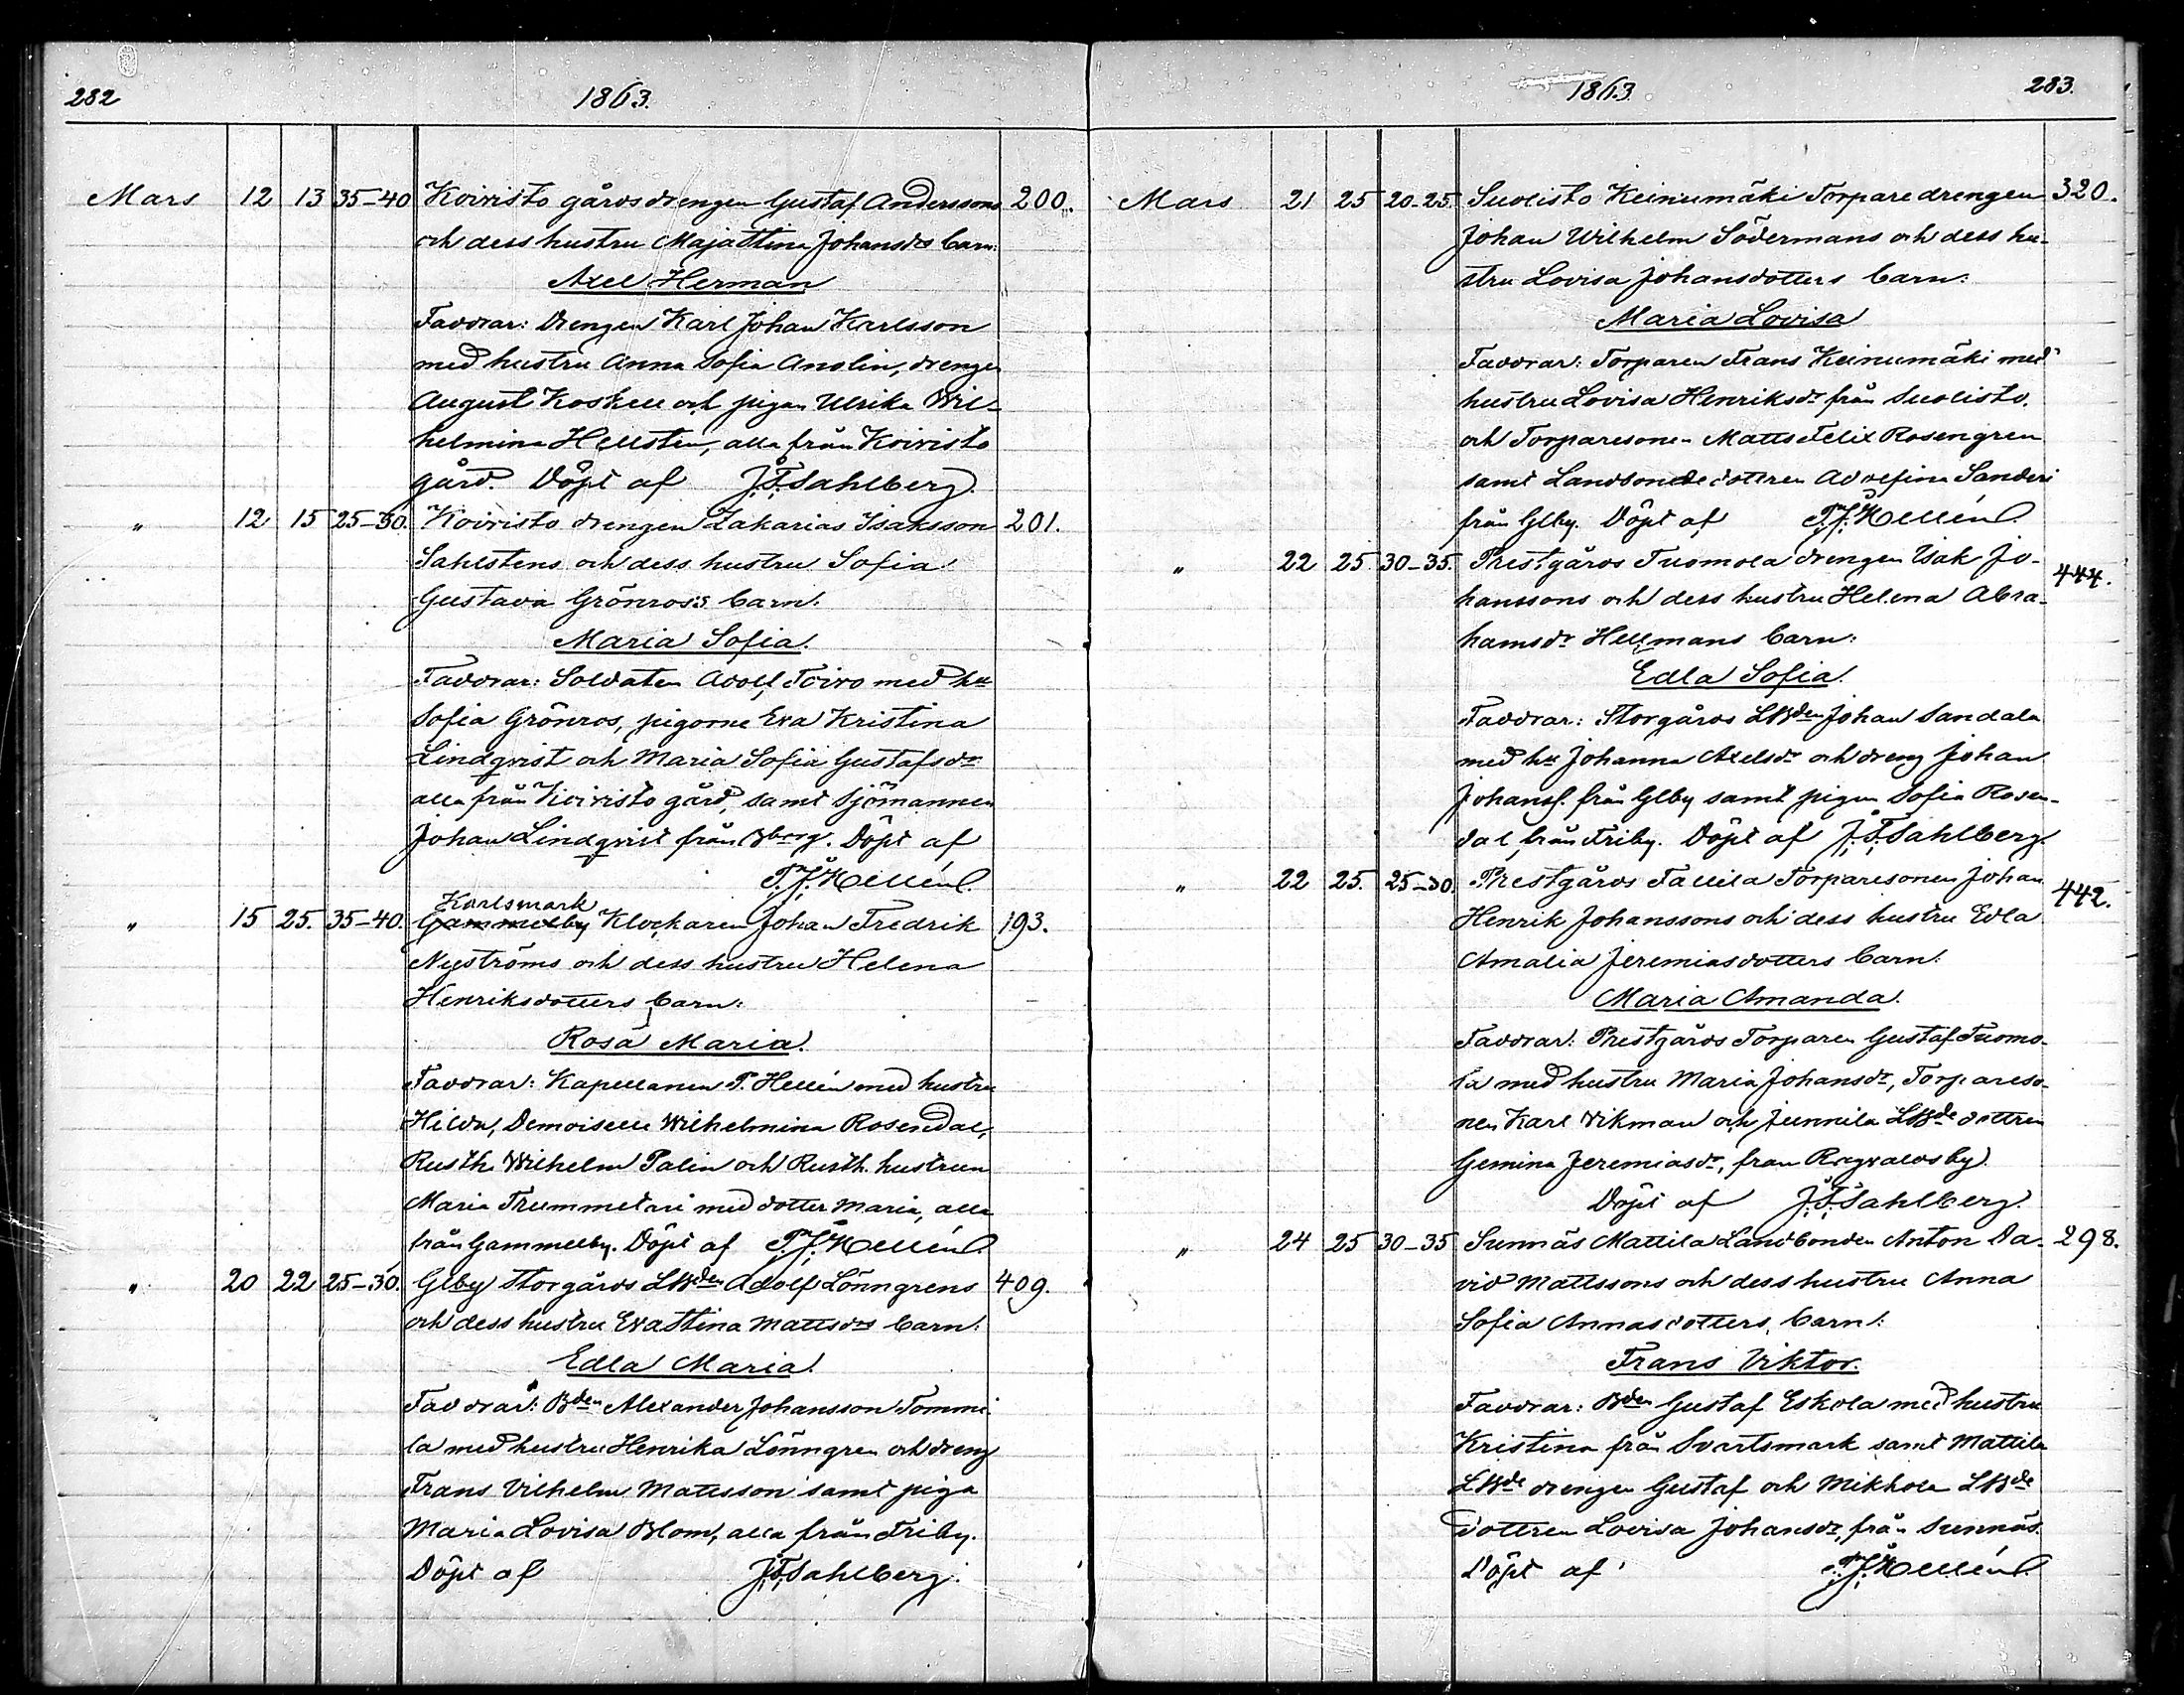 282
1863.
Mars 12 13 35–40 Koivisto gårds drengen Gustaf Anderssons 200.
och dess hustru Maja Stina Johansdrs barn:
Axel Herman
Faddrar: Drengen Karl Johan Karlsson
med hustru Anna Sofia Anolin, drengen
August Koskell och pigan Ulrika Wil-
helmina Hellsten, alla från Koivisto
gård. Döpt af J.F. Sahlberg.
" 12 15 25–30. Koivisto drengen Zakarias Isaksson 201.
Sahlstens och dess hustru Sofia
Gustava Grönros's barn:
Maria Sofia.
Faddrar: Soldaten Adolf Toivo med hu
Sofia Grönros, pigorne Eva Kristina
Lindqvist och Maria Sofia Gustafsdr
alla från Koivisto gård, samt Sjömannen
Johan Lindqvist från Bborg. Döpt af
T.J. Hellén.
Karlsmark
" 15 25. 35–40. Gammelby Klockaren Johan Fredrik 193.
Nyströms och dess hustru Helena
Henriksdotters barn:
Rosa Maria.
Faddrar: Kapellanen T. Hellén med hustru
Hilda, Demoiselle Wilhelmina Rosendal,
Rusth. Wilhelm Palin och Rusth. hustrun
Maria Trummetari med dotter Maria, alla
från Gammelby. Döpt af T.J. Hellén.
" 20 22 25–30. Glby Storgårds LBden Adolf Lönngrens 409.
och dess hustru Eva Stina Mattsdrs barn:
Edla Maria.
Faddrar: Bden Alexander Johansson Tommi-
la med hustru Henrika Lönngren och dreng
Frans Vilhelm Mattsson samt piga
Maria Lovisa Blom, alla från Friby.
Döpt af J.F. Sahlberg.
1863
283.
Mars 21 25 20–25. Suolisto Keinumäki Torpare drengen 320.
Johan Wilhelm Södermans och dess hu-
stru Lovisa Johansdotters barn:
Maria Lovisa
Faddrar: Torparen Frans Keinumäki med
hustru Lovisa Henriksdr från Suolisto,
och Torparesonen Matts Felix Rosengren
samt Landbonde dottren Adolfina Sanderi
från Glby. Döpt af T.J. Hellén.
" 22 25 30–35. Prestgårds Tuomola drengen Isak Jo- 444.
hanssons och dess hustru Helena Abra-
hamsdr Hellmans barn:
Edla Sofia.
Faddrar: Storgårds LBden Johan Sandala
med hu Johanna Axelsdr och dreng Johan
Johanss. från Glby samt pigan Sofia Rosen-
dal från Friby. Döpt af J.F. Sahlberg.
" 22 25. 25–30. Prestgårds Tallila Torparesonen Johan 442.
Henrik Johanssons och dess hustru Edla
Amalia Jeremiasdotters barn:
Maria Amanda.
Faddrar: Prestgårds Torparen Gustaf Tuomo-
la med hustru Maria Johansdr, Torpareso-
nen Karl Vikman och Junnila LBde dottren
Gemina Jeremiasdr, från Ragvaldsby.
Döpt af J.F. Sahlberg.
" 24 25 30–35 Sunnäs Mattila Landbonden Anton Da- 298.
vid Mattssons och dess hustru Anna
Sofia Annasdotters barn:
Frans Viktor.
Faddrar: Bden Gustaf Eskola med hustru
Kristina från Svartsmark samt Mattila
LBde drengen Gustaf och Mikkola LBde
dottren Lovisa Johansdr, från Sunnäs.
Döpt af T.J. Hellén.